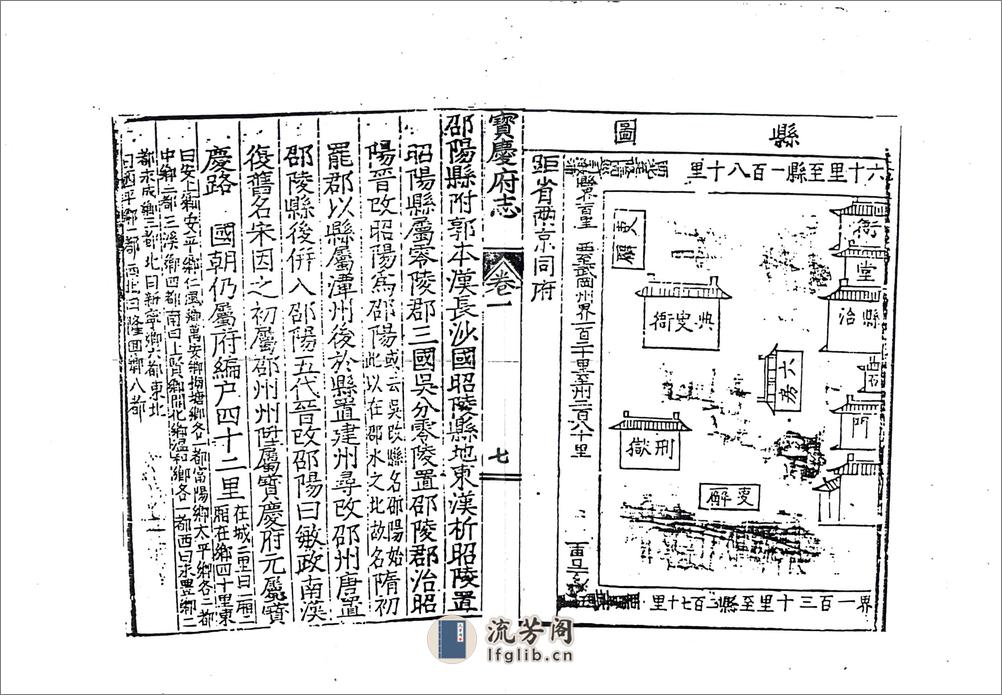 縣圖
六十里至縣一百八十里
衙
堂
縣治
吏廨
典史衙
六房
刑獄
吏廨
界一百三十里至縣二百七十里
縣界百里 西至武岡州界一百二十里至州二百八十里
距省兩京同府
寶慶府志 卷一 七
邵陽縣附郭本漢長沙國昭陵縣地東漢析昭陵置
昭陽縣屬零陵郡三國吳分零陵置邵陵郡治昭
陽晉改昭陽爲邵陽或云吳改縣名邵陽始此以在邵水之北故名隋初
罷郡以縣屬潭州後於縣置建州尋改邵州唐置
邵陵縣後併入邵陽五代晉改邵陽曰敏政南漢
復舊名宋因之初屬邵州州陞屬寶慶府元屬寶
慶路 國朝仍屬府編户四十二里在城二里曰廂二廂在鄉四十里東
曰安上鄉安平鄉仁風鄉萬安鄉 塘鄉各一都富陽鄉太平鄉各二都
中鄉二都三溪鄉四都南曰上賢鄉開化鄉温和鄉各一都西曰永豐鄉二
都永成鄉三都北曰新寧鄉六都東北
曰國平鄉一都西北曰隆回鄉八都
流芳阁
lfglib.cn